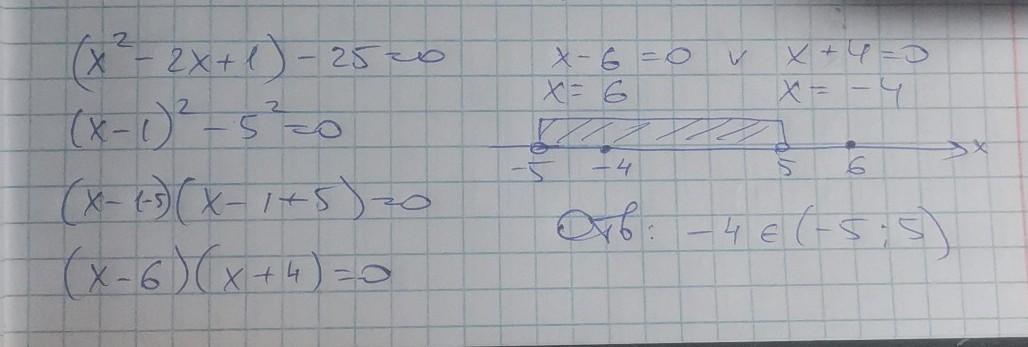 (x² - 2x + 1) - 25 = 0
(x - 1)² - 5² = 0
(x - 1 - 5)(x - 1 + 5) = 0
(x - 6)(x + 4) = 0
x - 6 = 0 v x + 4 = 0
x = 6 x = -4
-5 -4 5 6 x
Отв: -4 ∈ (-5 ; 5)